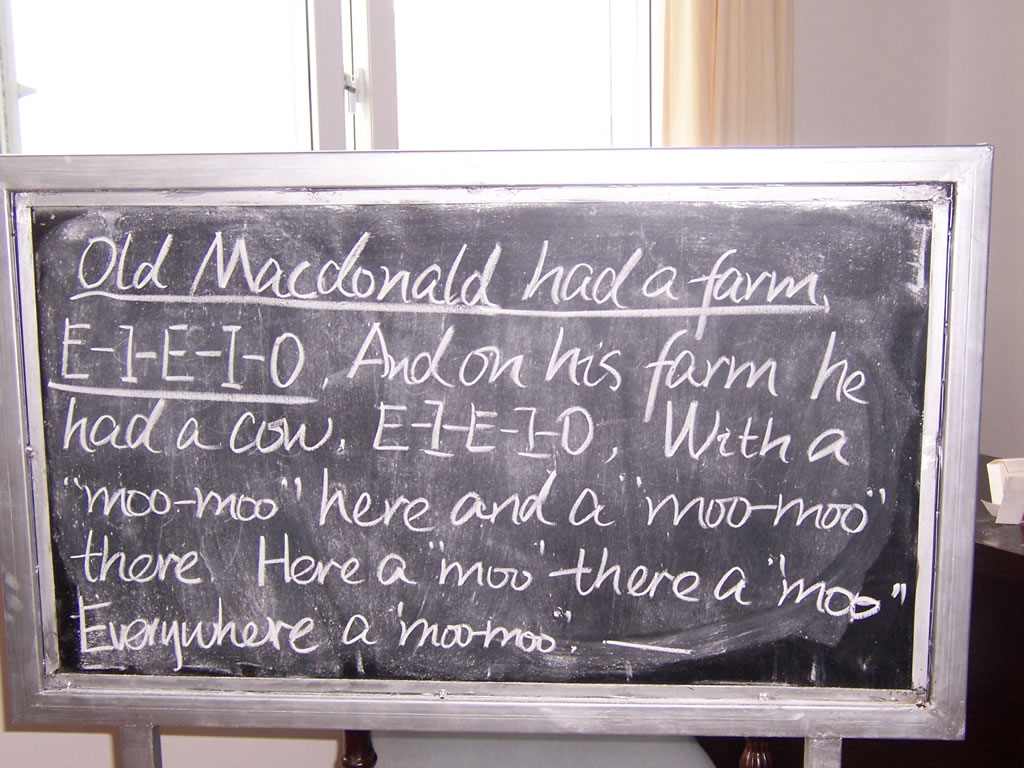 Old Macdonald had a farm,
E-I-E-I-O, And on his farm he
had a cow, E-I-E-I-O, With a
"moo-moo" here and a "moo-moo"
there Here a "moo" there a "moo"
Everywhere a "moo-moo".